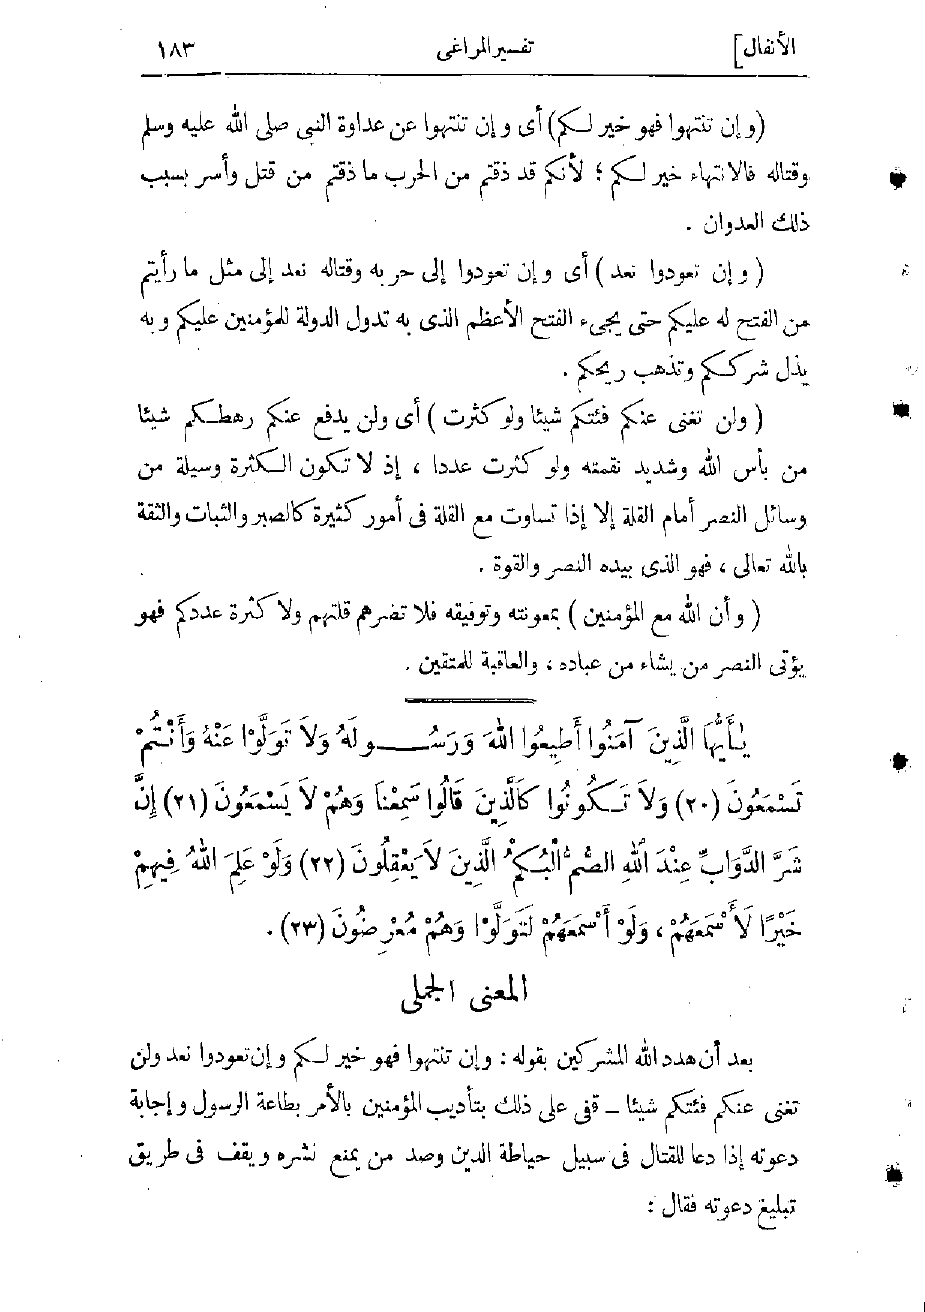 الأنفال]
تفسير المراغى
١٨٣
(وإن تنتهوا فهو خير لكم) أى وإن تنتهوا عن عداوة النبى صلى الله عليه وسلم
وقتاله فالانتهاء خير لكم ؛ لأنكم قد ذقتم من الحرب ما ذقتم من قتل وأسر بسبب
ذلك العدوان .
( وإن تعودوا نعد ) أى وإن تعودوا إلى حربه وقتاله نعد إلى مثل ما رأيتم
من الفتح له عليكم حتى يجىء الفتح الأعظم الذى به تدول الدولة للمؤمنين عليكم وبه
يذل شرككم وتذهب ريحكم .
( ولن تغنى عنكم فئتكم شيئا ولو كثرت ) أى ولن يدفع عنكم رهطكم شيئا
من بأس الله وشديد نقمته ولو كثرت عددا ، إذ لا تكون الكثرة وسيلة من
وسائل النصر أمام القلة إلا إذا تساوت مع القلة فى أمور كثيرة كالصبر والثبات والثقة
بالله تعالى ، فهو الذى بيده النصر والقوة .
( وأن الله مع المؤمنين ) بمعونته وتوفيقه فلا تضرهم قلتهم ولا كثرة عددكم فهو
يؤتى النصر من يشاء من عباده ، والعاقبة للمتقين .
يٰأَيُّهَا الَّذِينَ آمَنُوا أَطِيعُوا اللهَ وَرَسُولَهُ وَلاَ تَوَلَّوْا عَنْهُ وَأَنْتُمْ
تَسْمَعُونَ (٢٠) وَلاَ تَكُونُوا كَالَّذِينَ قَالُوا سَمِعْنَا وَهُمْ لاَ يَسْمَعُونَ (٢١) إِنَّ
شَرَّ الدَّوَابِّ عِنْدَ اللهِ الصُّمُّ الْبُكْمُ الَّذِينَ لاَ يَعْقِلُونَ (٢٢) وَلَوْ عَلِمَ اللهُ فِيهِمْ
خَيْرًا لَأَسْمَعَهُمْ ، وَلَوْ أَسْمَعَهُمْ لَتَوَلَّوْا وَهُمْ مُعْرِضُونَ (٢٣) .
المعنى الجملى
بعد أن هدد الله المشركين بقوله : وإن تنتهوا فهو خير لكم وإن تعودوا نعد ولن
تغنى عنكم فئتكم شيئا ــ قفى على ذلك بتأديب المؤمنين بالأمر بطاعة الرسول وإجابة
دعوته إذا دعا للقتال فى سبيل حياطة الدين وصد من يمنع نشره ويقف فى طريق
تبليغ دعوته فقال :